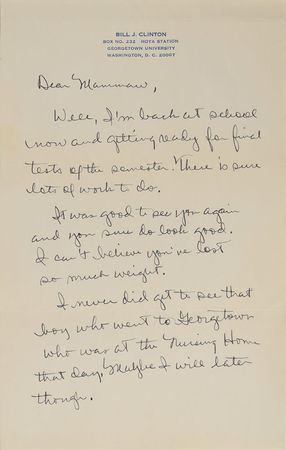 BILL J. CLINTON
BOX NO. 232 HOYA STATION
GEORGETOWN UNIVERSITY
WASHINGTON, D. C. 20007
Dear Mammaw,
Well, I'm back at school
now and getting ready for final
tests of the semester. There is sure
lots of work to do.
It was good to see you again
and you sure do look good.
I can't believe you've lost
so much weight.
I never did get to see that
boy who went to Georgetown
who was at the Nursing Home
that day. Maybe I will later
though.